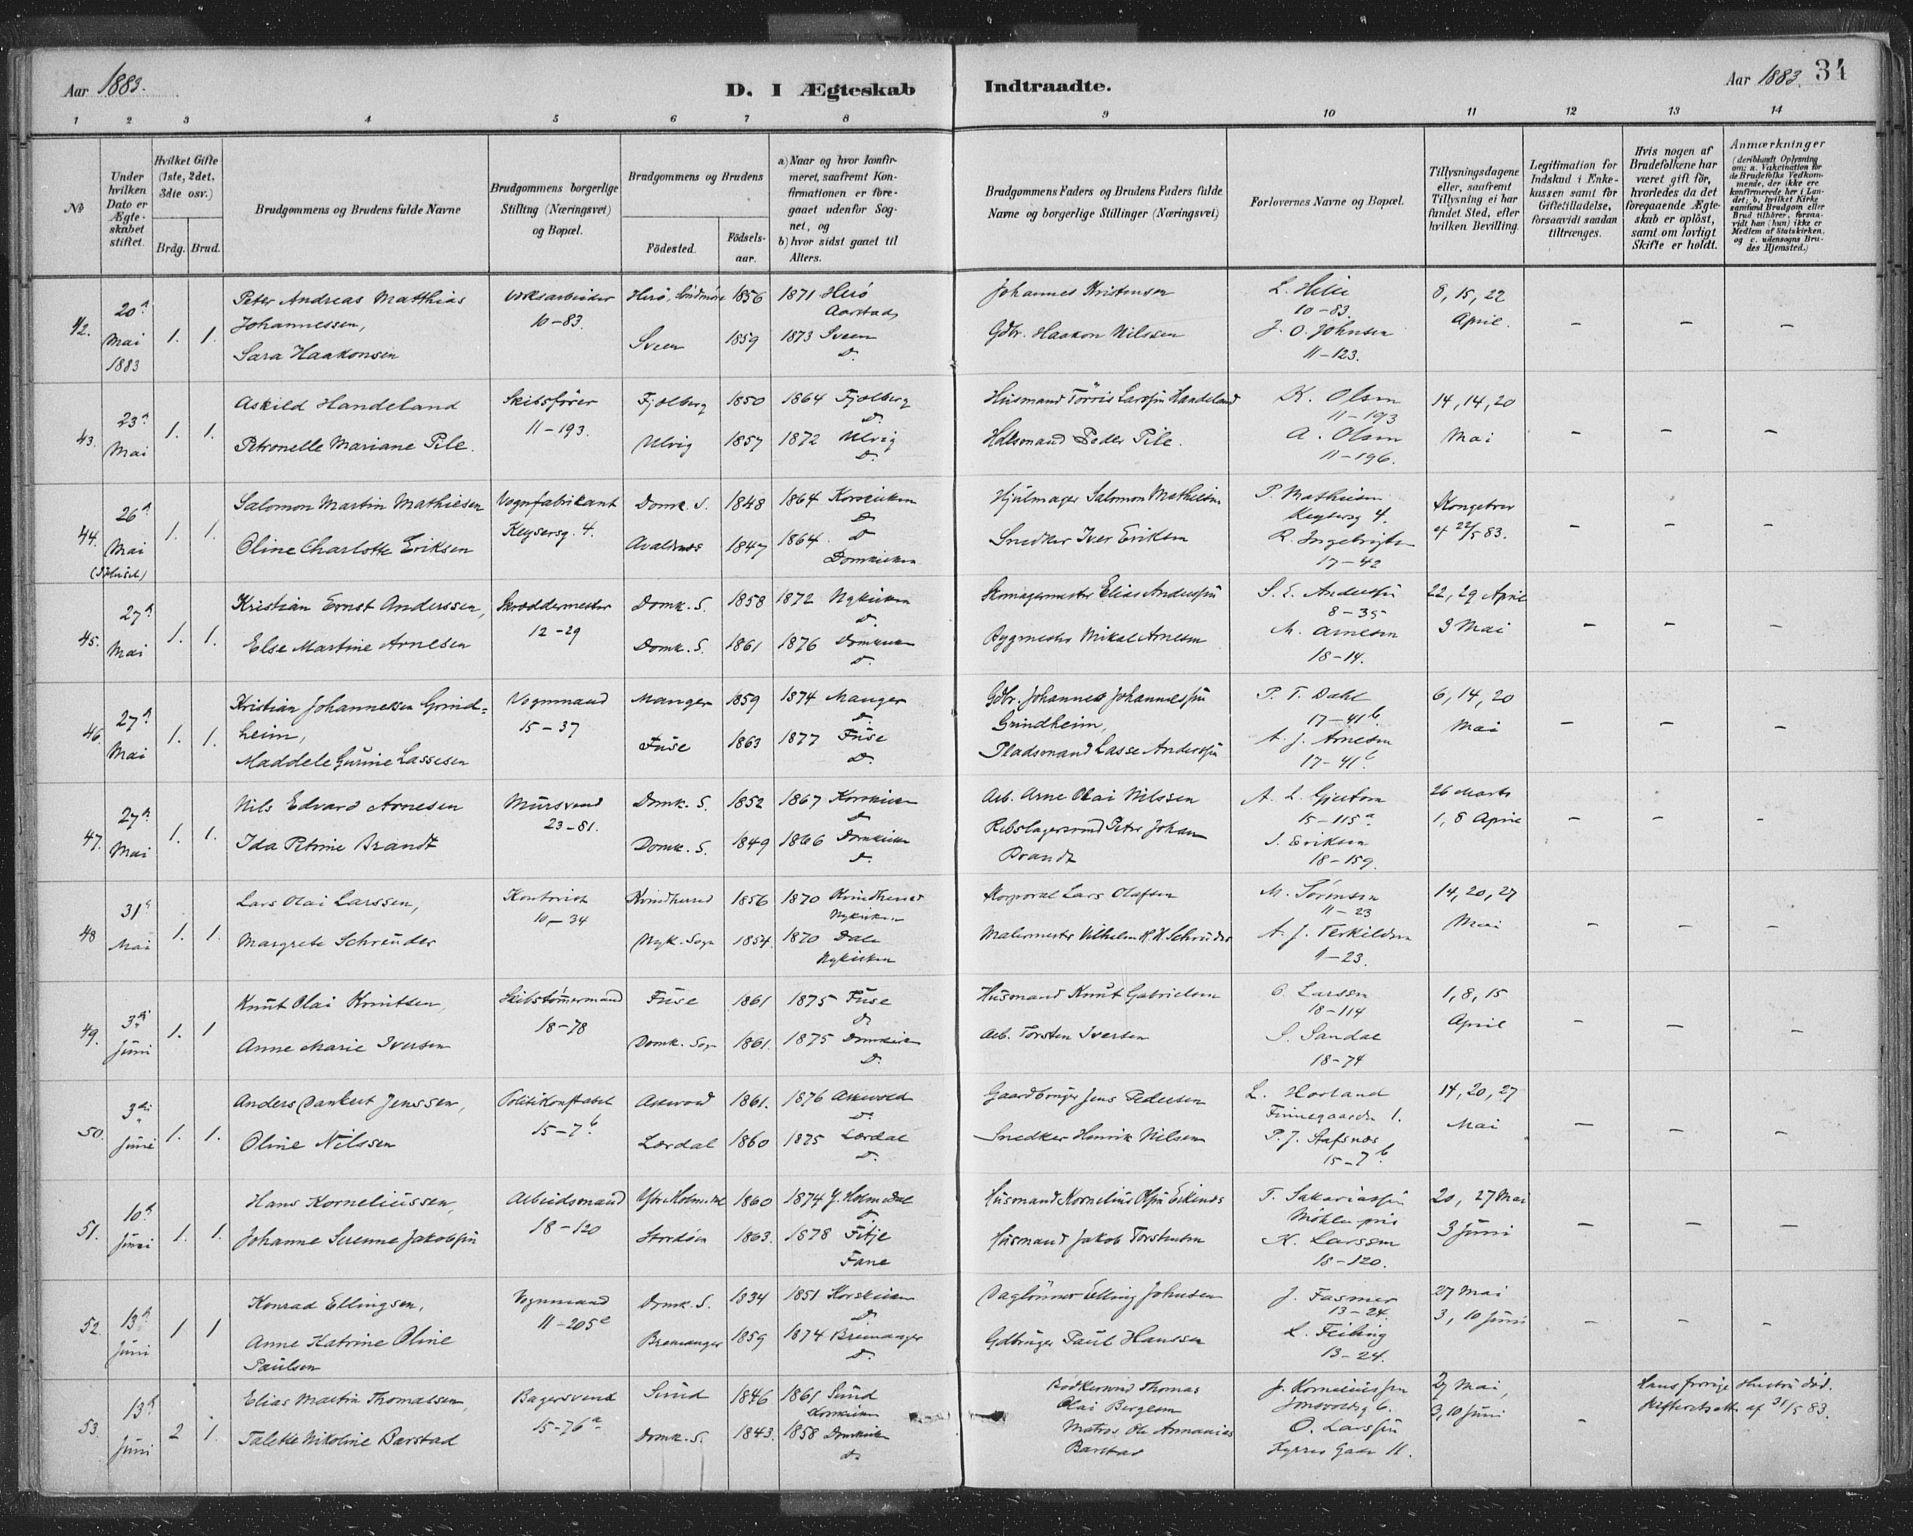 Aar 1883.
D. I Ægteskab Indtraadte.
Aar 1883. 34
1 2 3 4 5 6 7 8 9 10 11 12 13 14
No
Under hvilken Dato er Ægteskabet stiftet.
Hvilket Gifte (1ste, 2det, 3die osv.)
Brdg. Brud.
Brudgommens og Brudens fulde Navne
Brudgommens borgerlige Stilling (Næringsvei) og Bopæl.
Brudgommens og Brudens
Födested. Födsels-aar.
a) Naar og hvor konfirmeret, saafremt Konfirmationen er foregaaet udenfor Sognet, og
b) hvor sidst gaaet til Alters.
Brudgommens Faders og Brudens Faders fulde Navne og borgerlige Stillinger (Næringsvei)
Forlovernes Navne og Bopæl.
Tillysningsdagene eller, saafremt Tillysning ei har fundet Sted, efter hvilken Bevilling.
Legitimation for Indskud i Enkekassen samt for Giftetilladelse, forsaavidt saadan tiltrænges.
Hvis nogen af Brudefolkene har været gift før, hvorledes da det foregaaende Ægteskab er oplöst, samt om lovligt Skifte er holdt.
Anmærkninger
(deriblandt Oplysning om: a. Vaccination for de Brudefolks Vedkommende, der ikke ere konfirmerede her i Landet; b. hvilket Kirkesamfund Brudgom eller Brud tilhörer, forsaavidt han (hun) ikke er Medlem af Statskirken, og c. udensogns Brudes Hjemsted.)
42. 20de Mai 1883 1. 1. Peter Andreas Matthias Johannessen, 10-83. Herö, Söndmöre 1856 1871 Herö Aarstad Johannes Kristensen L. Hille 10-83. 8, 15, 22 April. - - -
Sara Haakonsen Sveen 1859 1873 Sveen do. Gdbr. Haakon Nilssen J. O. Johnsen 11-123.
43. 23de Mai 1. 1. Askild Handeland Skibsförer 11-193. Fjelberg 1850 1864 Fjelberg do. Husmand Törris Larssön Haadeland K. Olsen 11-193 14, 14, 20 Mai - - -
Petronelle Mariane Pile. Ulvig 1857 1872 Ulvig do. Peder Pile. A. Olsen 11-196.
44. 26de Mai 1. 1. Salomon Martin Mathiesen Vognfabrikant Keysersg. 4. Domk. S. 1848 1864 Korskirken do. Hjulmager Salomon Mathiesen P. Mathiesen Keysersg 4. Kongebrev af 22/5 83. - - -
Oline Charlotte Eriksen Avaldsnes 1847 1864. do Domkirken Snedker Iver Eriksen R. Ingebrigtsen 17-42
45. 27de Mai 1. 1. Kristian Ernst Anderssen, Skræddermester 12-29 Domk. S. 1858 1872 Nykirken do. Skomagermester Elias Anderssön S. E. Anderssön 8-35 22, 29 April 3 Mai - - -
Else Martine Arnesen Domk. S. 1861 1876 Domkirken do. Bygmester Mikal Arnesen M. Arnesen 18-14.
46. 27de Mai 1. 1. Kristian Johannessen Grindheim, Vognmand 15-37 Manger 1859 1874 Manger do. Gdbr. Johannes Johannessön Grindheim, P. T. Dahl 17-41b. 6, 14, 20 Mai - - -
Maddele Gurine Lassesen Fuse 1863 1877 Fuse do. Pladsmand Lasse Anderssön A. J. Arnesen 17-41b
47. 27de Mai 1. 1. Nils Edvard Arnesen Mursvend 23-81. Domk. S. 1852 1867 Korskirken do Arb. Arne Olai Nilssen A. L. 15-115a 26 Marts 1, 8 April - - -
Ida Petrine Brandt Domk. S. 1849 1866 Domkirken do. Rebslagersvend Peter Johan Brandt J. Eriksen 18-159.
48 31te Mai 1. 1. Lars Olai Larssen, Kontorist 10-34 Kvindherred 1856 1870 Kvindherred Nykirken Korporal Lars Olafsen M. Sörensen 11-23 14, 20, 27 Mai - - -
Margrete Schreuder Nyk. Sogn 1854 1870 Dale Nykirken Malermester Vilhelm Schreuder A. J. Terkildsen 11-23.
49. 3die Juni 1. 1 Knut Olai Knutsen, Skibstömmermand 18-78 Fuse 1861 1875 Fuse do Husmand Knut Gabrielsen O. Larsen 18-114 1, 8, 15 April - - -
Anne Marie Iversen Domk. Sogn 1861. 1875 Domkirken do. Arb. Torsten Iversen S. Sandal 18-74
50. 3die Juni 1. 1. Anders Dankert Jenssen, Politikonstabel 15-7b Askvold 1861. 1876 Askvold do. Gaardbruger Jens Pedersen L. Hovland Finnegaarden 1. 14, 20, 27 Mai - - -
Oline Nilssen Lærdal 1860 1875 Lærdal do. Snedker Henrik Nilsen P. J. Stafsnes 15-7b.
51. 10de Juni 1. 1. Hans Korneliussen, Arbeidsmand 18-120 Ytre Holmedal 1860 1874 Y. Holmedal do Husmand Kornelius Olsön T. Sakariassön Möhlenpris 20, 27 Mai 3 Juni - - -
Johanne Serenne Jakobssön Stordöen 1863. 1878 Fitje Fane Husmand Jakob Torstensen K. Larssen 18-120.
52. 13de Juni 1 1 Konrad Ellingsen, Vognmand 11-205e Domk. S. 1834 1851 Korskirken do Daglönner Elling Johnsen J. Fasmer 13-24. 27 Mai 3, 10 Juni - - -
Anne Katrine Oline Paulsen Bremanger 1859 1874 Bremanger do. Gdbruger Paul Hanssen L. Feiling 13-24.
53. 13de Juni 2 1. Elias Martin Thomassen, Bagersvend 15-76a Sund 1846 1861 Sund Domkirken Bödkersvend Thomas Olai Bergesen J. Korneliussen Jonsvoldsg 6. 27 Mai, 3, 10 Juni - Hans forrige Hustru död. Skifteretsatt. af 31/5 83.
Talette Nikoline Barstad Domk. S. 1843. 1858 Domkirken do Matros Ole Annanias Barstad O. Larssön Gaar 11.